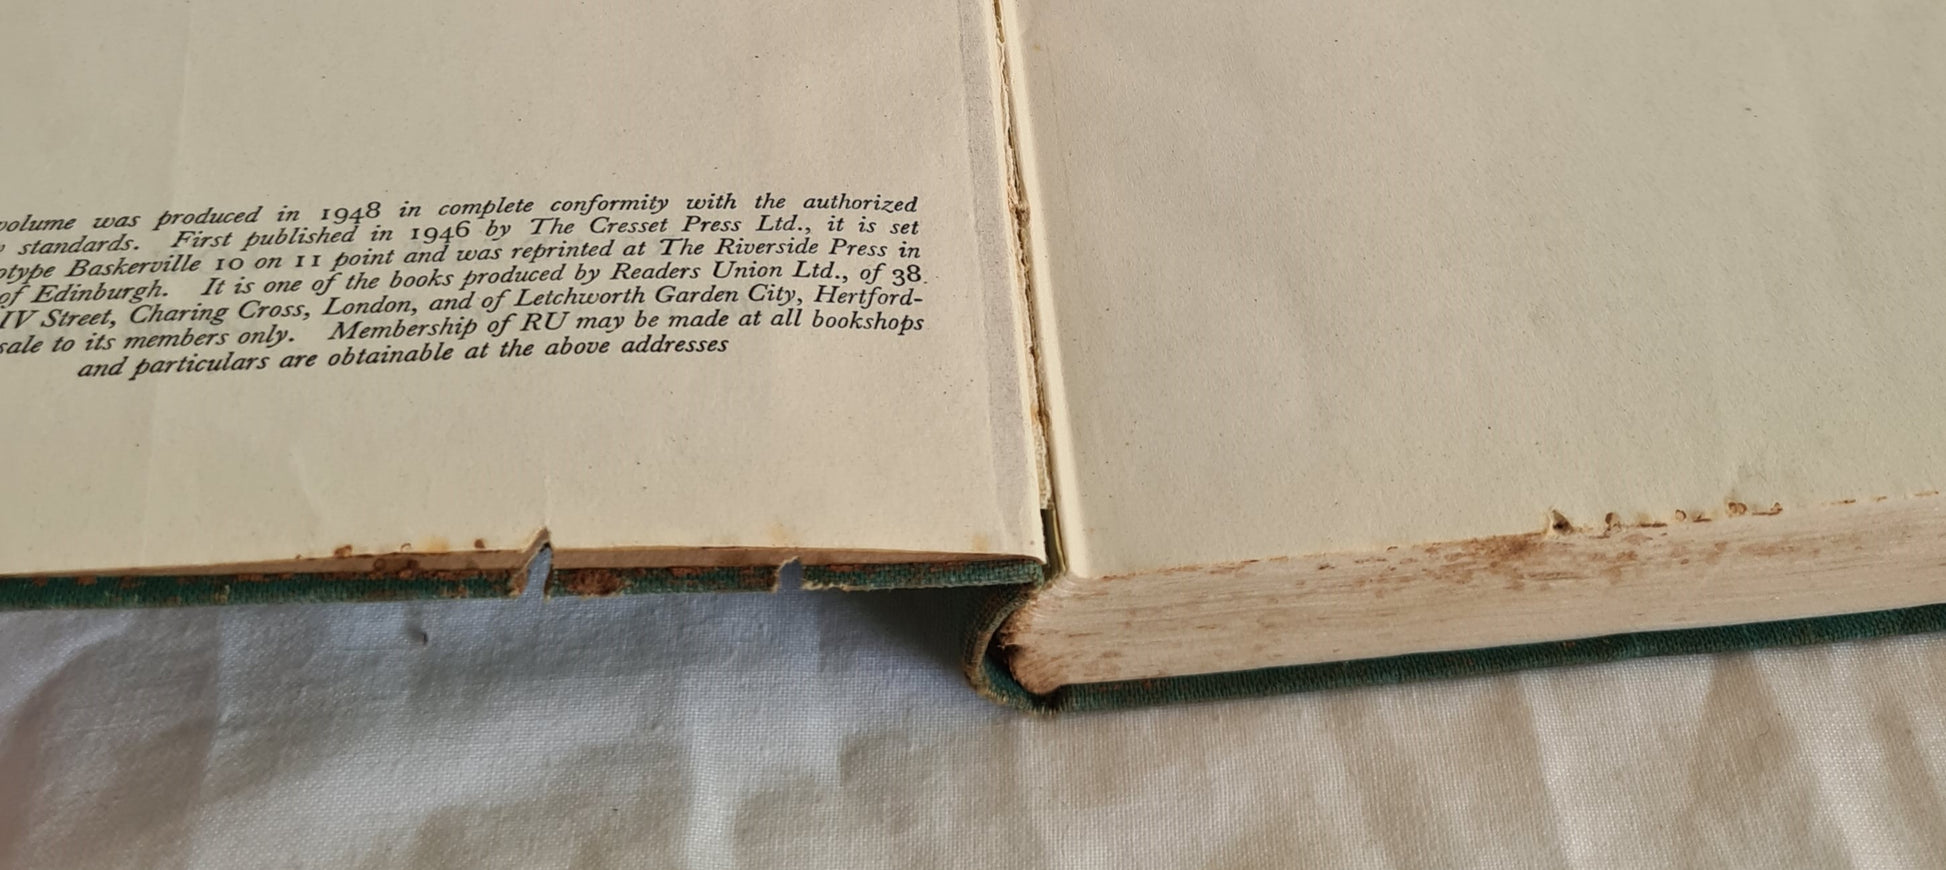 volume was produced in 1948 in complete conformity with the authorized
standards. First published in 1946 by The Cresset Press Ltd., it is set
otype Baskerville 10 on 11 point and was reprinted at The Riverside Press in
of Edinburgh. It is one of the books produced by Readers Union Ltd., of 38
IV Street, Charing Cross, London, and of Letchworth Garden City, Hertford-
sale to its members only. Membership of RU may be made at all bookshops
and particulars are obtainable at the above addresses